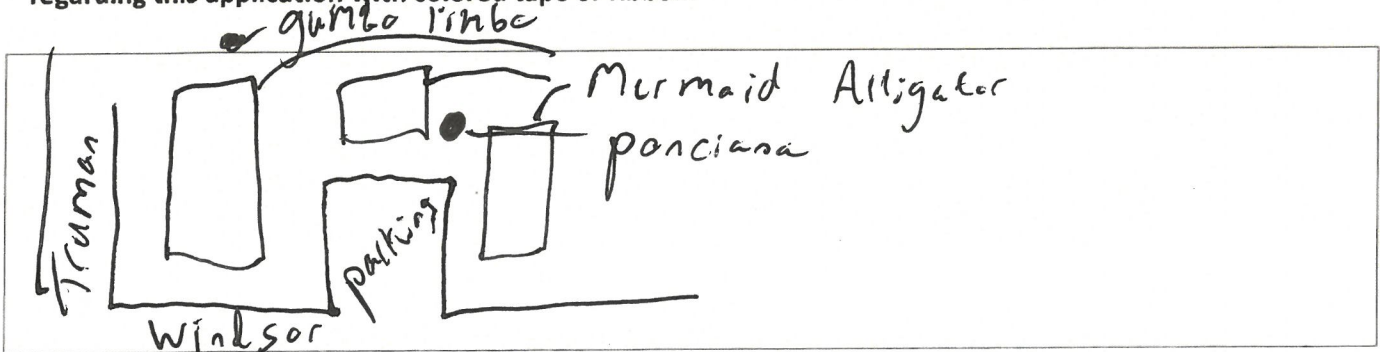 regarding this application with colored tape or
gumbo limbo
Mermaid Alligator
ponciana
Truman
parking
Windsor